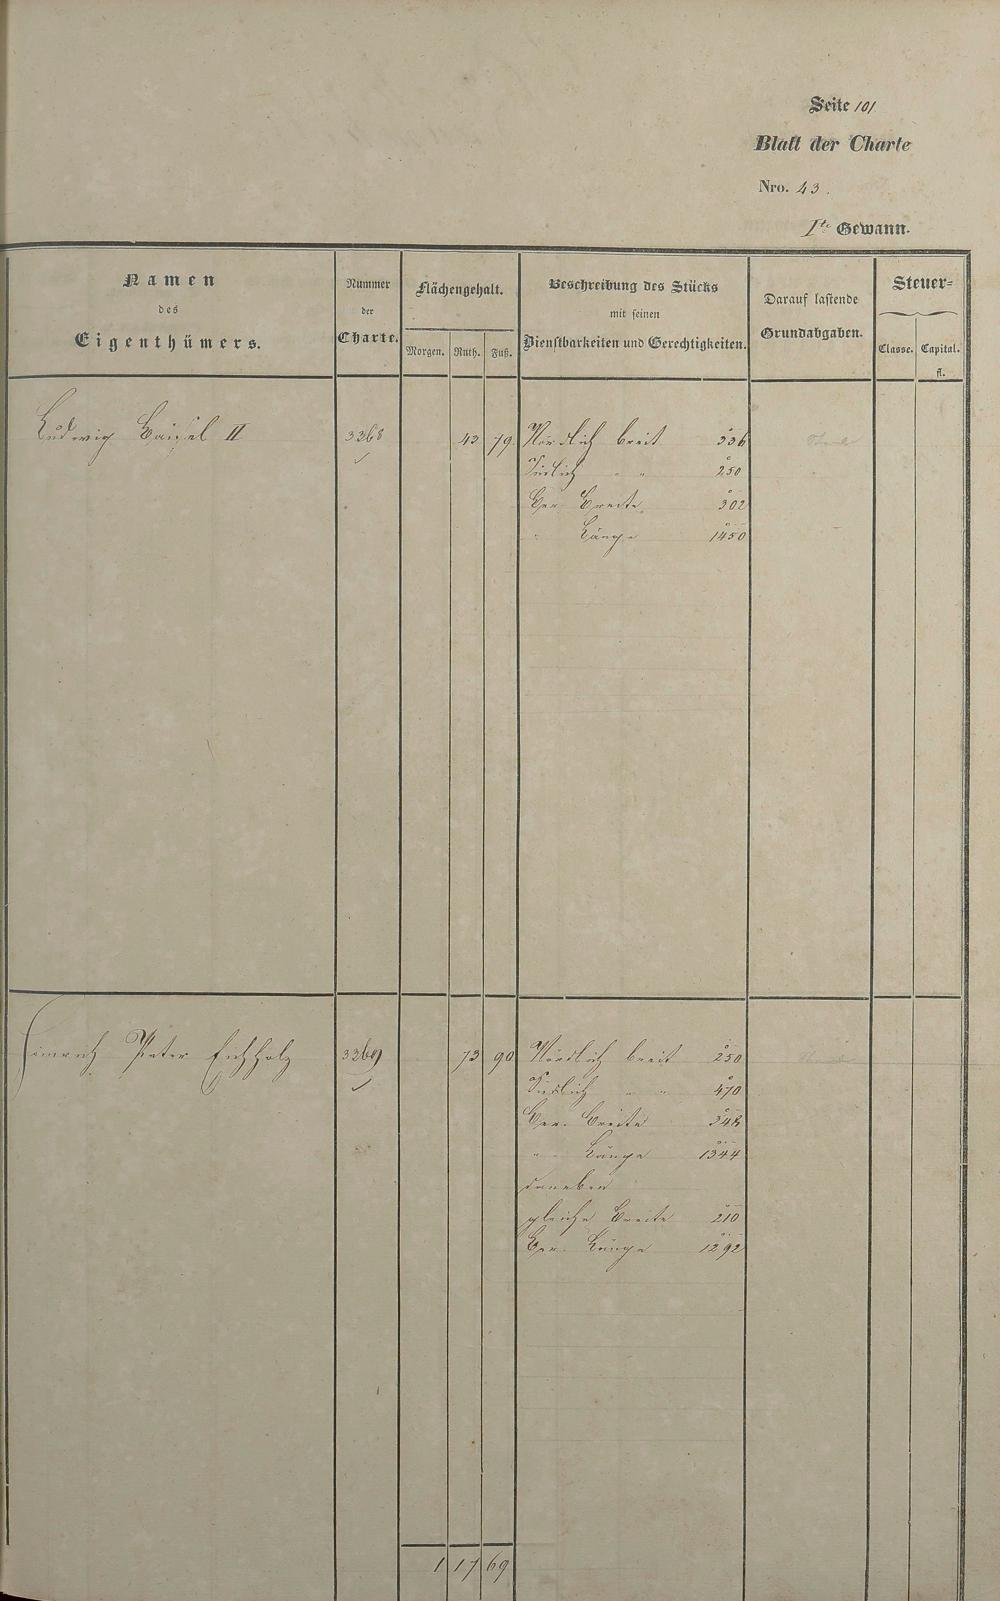 Seite 101
Blatt der Charte
Nro. 43.
Ite Gewann.
Namen
des
Eigenthümers.
Nummer
der
Charte.
Flächengehalt.
Morgen. Ruth. Fuß.
Beschreibung des Stücks
mit seinen
Dienstbarkeiten und Gerechtigkeiten.
Darauf lastende
Grundabgaben.
Steuer=
Classe. Capital.
fl.
Ludwig II 3268 43 79 Nördlich breit 336
Südlich " " 250
Ger. Breite 302
" Länge 1450
Heinrich Peter Eichholz 3269 73 90 Nördlich breit 250
Südlich " " 470
Ger. Breite 348
" Länge 1344
daneben
gleiche Breite 210
Ger. Länge 1292
1 17 69